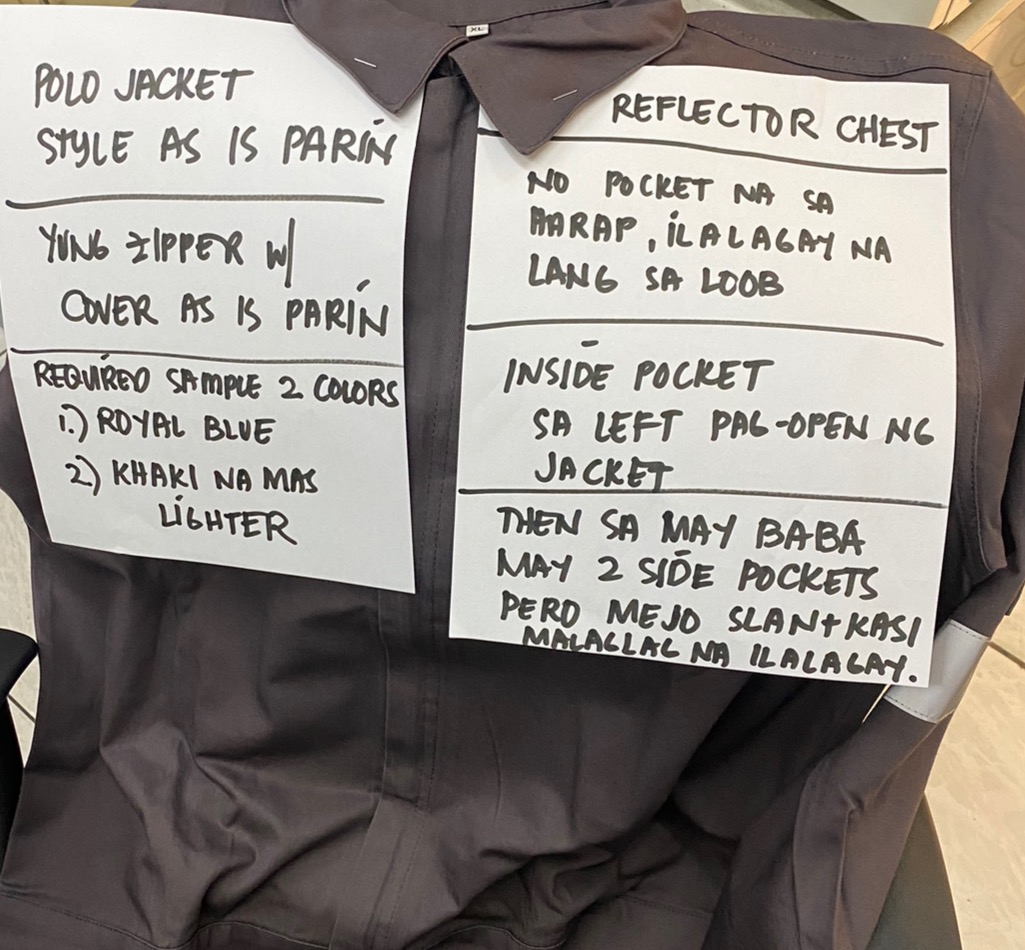 XL
POLO JACKET
STYLE AS IS PARIN
YUNG ZIPPER W/
COVER AS IS PARIN
REQUIRED SAMPLE 2 COLORS
1.) ROYAL BLUE
2) KHAKI NA MAS
LIGHTER
REFLECTOR CHEST
NO POCKET NA SA
HARAP, ILALAGAY NA
LANG SA LOOB
INSIDE POCKET
SA LEFT PAG-OPEN NG
JACKET
THEN SA MAY BABA
MAY 2 SIDE POCKETS
PERO MEJO SLANT KASI
MALAGLAG NA ILALAGAY.